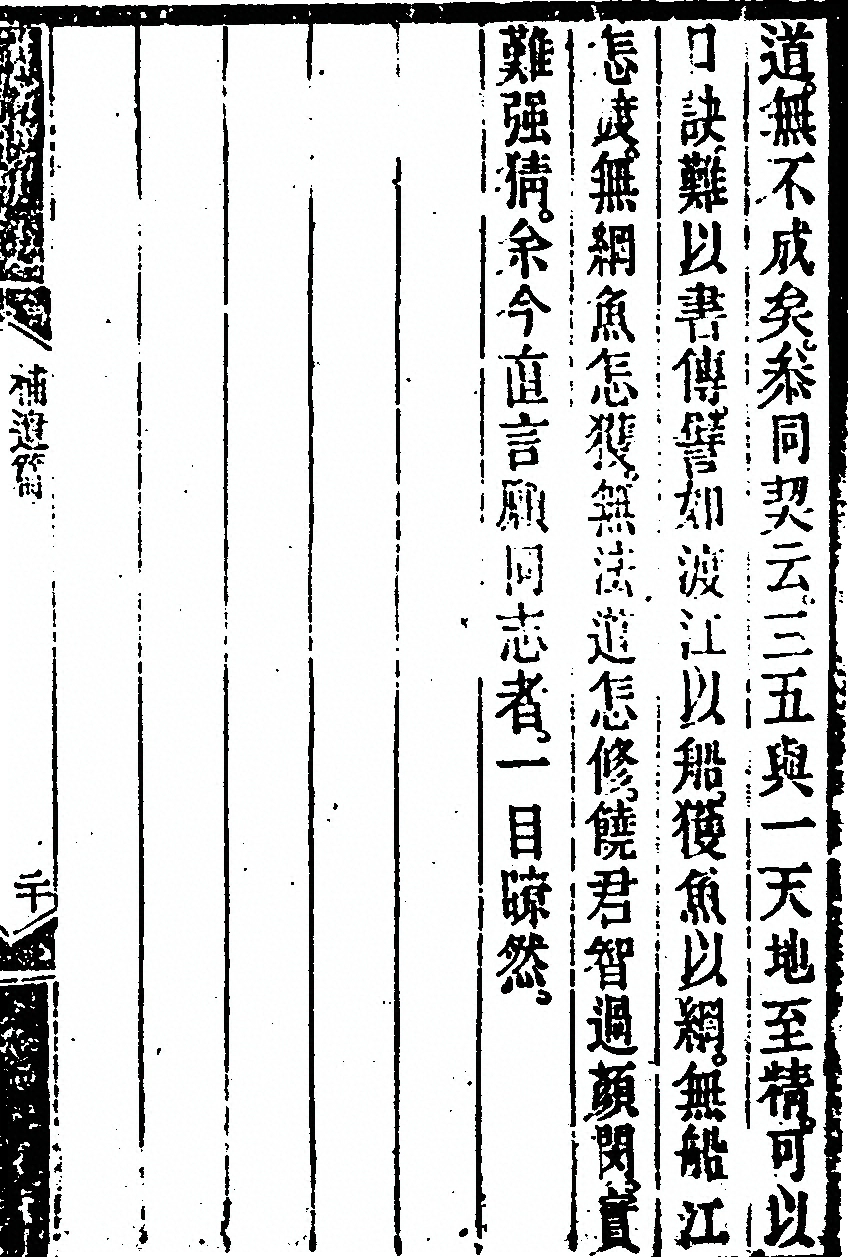 道。無不成矣。叅同契云。三五與一天地至精。可以
口訣。難以書傳。譬如渡江以船。獲魚以網。無船江
怎渡。無網魚怎獲。無法道怎修。饒君智過顏閔。實
難强猜。余今直言願同志者。一目瞭然。
補遺篇
二十